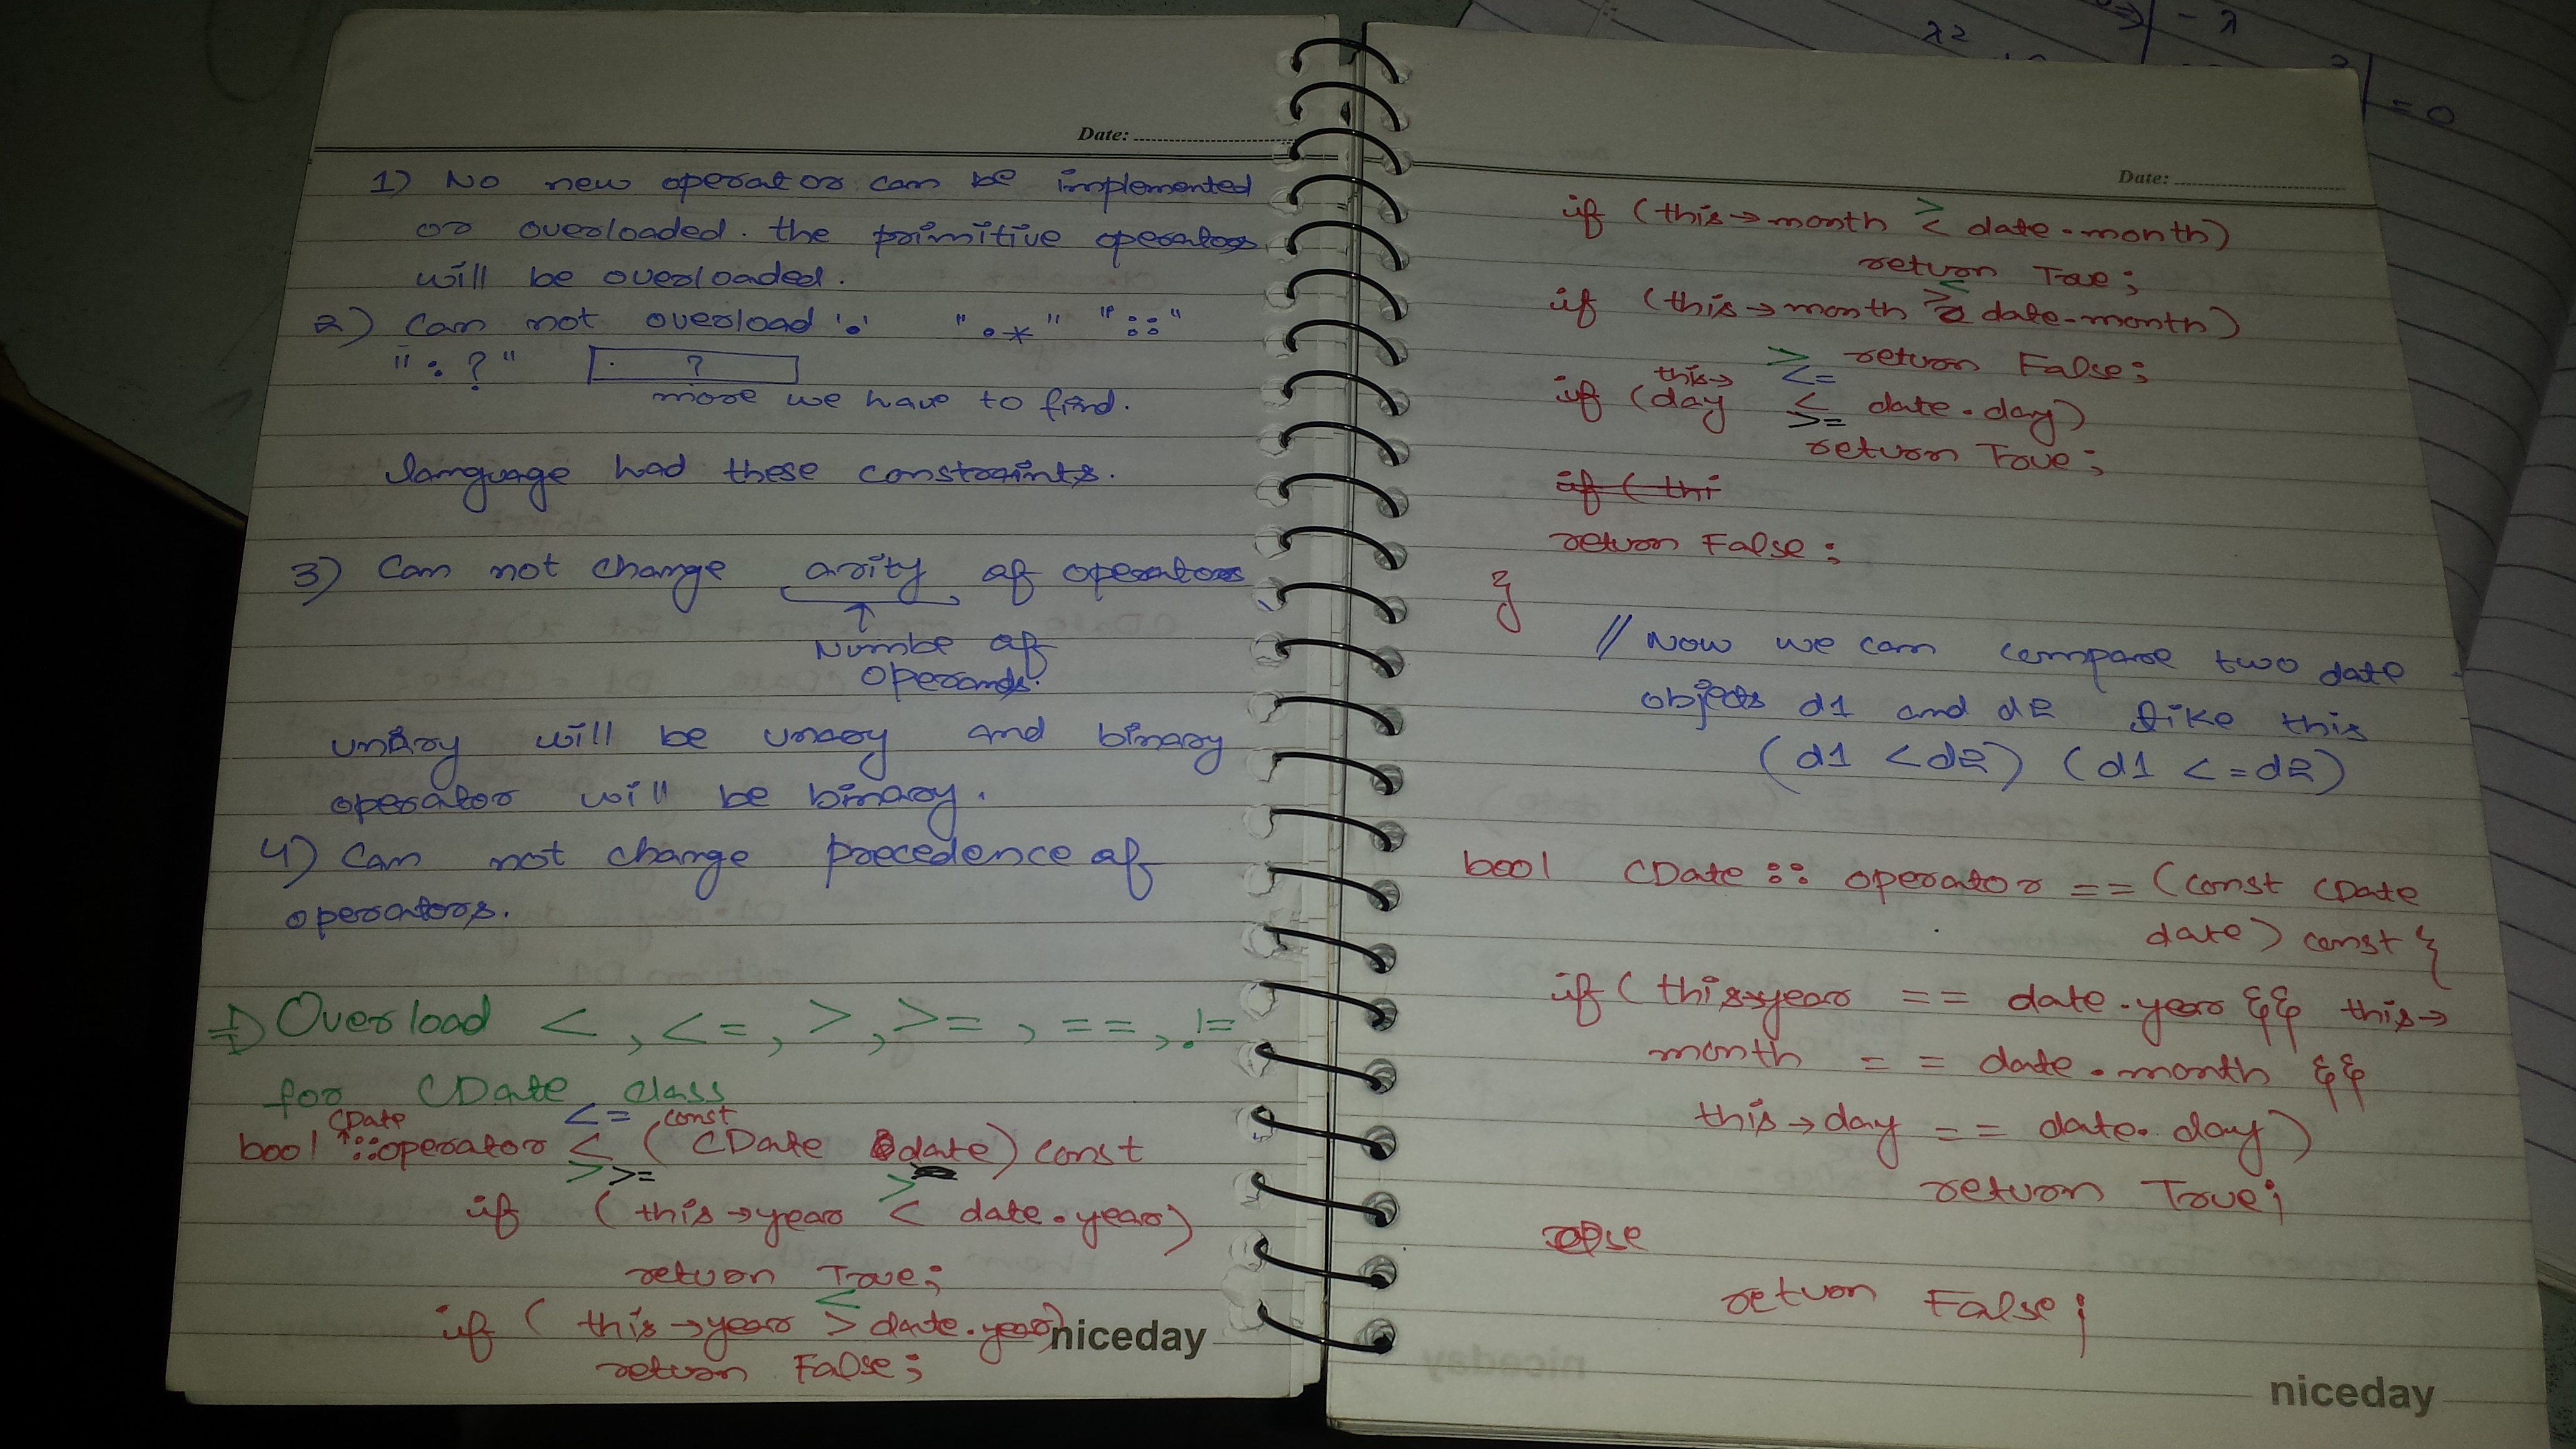 Date:
1) No new operator can be implemented
or overloaded. the primitive operators
will be overloaded.
2) Can not overload '.' ".*" "::"
":?" ?
more we have to find.
language had these constraints.
3) Can not change arity of operators
Numbe of
operands.
unary will be unary and binary
operator will be binary.
4) Can not change precedence of
operators.
Overload <, <=, >, >=, ==, !=
for CDate class
CDate <= const
bool ::operator < ( CDate date) const
> >= >
if (this→year < date.year)
return True;
<
if ( this→year > date.year)
return False;
niceday
Date:
>
if (this→month < date.month)
return True;
<
if (this→month > date.month)
> return False;
this→ <=
if (day < date.day)
>=
return True;
if ( thi
return False;
}
// Now we can compare two date
objects d1 and d2 like this
(d1 < d2) (d1 <= d2)
bool CDate :: operator == (const CDate
date) const {
if (this→year == date.year && this→
month == date.month &&
this→day == date.day)
return True;
else
return False;
niceday
λ2
- λ
= 0